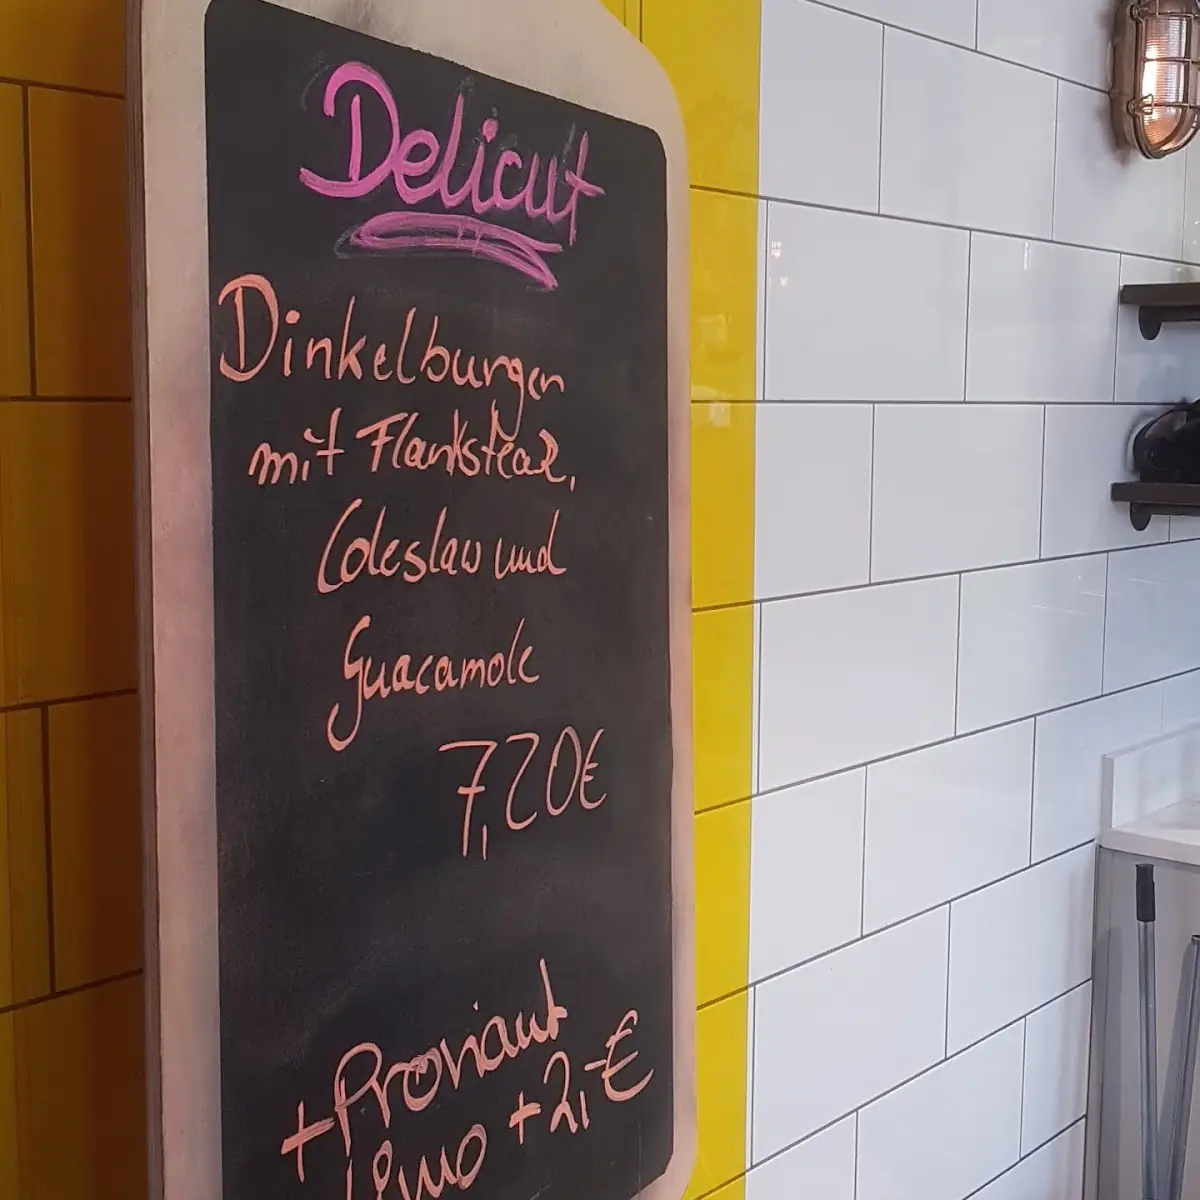 Delicut
Dinkelburger
mit Flanksteak,
Coleslaw und
Guacamole
7,20€
+ Proviant
Limo +2,-€